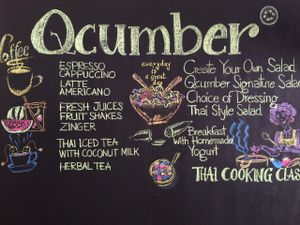 Qcumber
Coffee
ESPRESSO
CAPPUCCINO
LATTE
AMERICANO
FRESH JUICES
FRUIT SHAKES
ZINGER
THAI ICED TEA
WITH COCONUT MILK
HERBAL TEA
everyday
is a
great
day
Create Your Own Salad
Qcumber Signature Salad
Choice of Dressing
Thai Style Salad
Breakfast
with Homemade
Yogurt
THAI COOKING CLAS